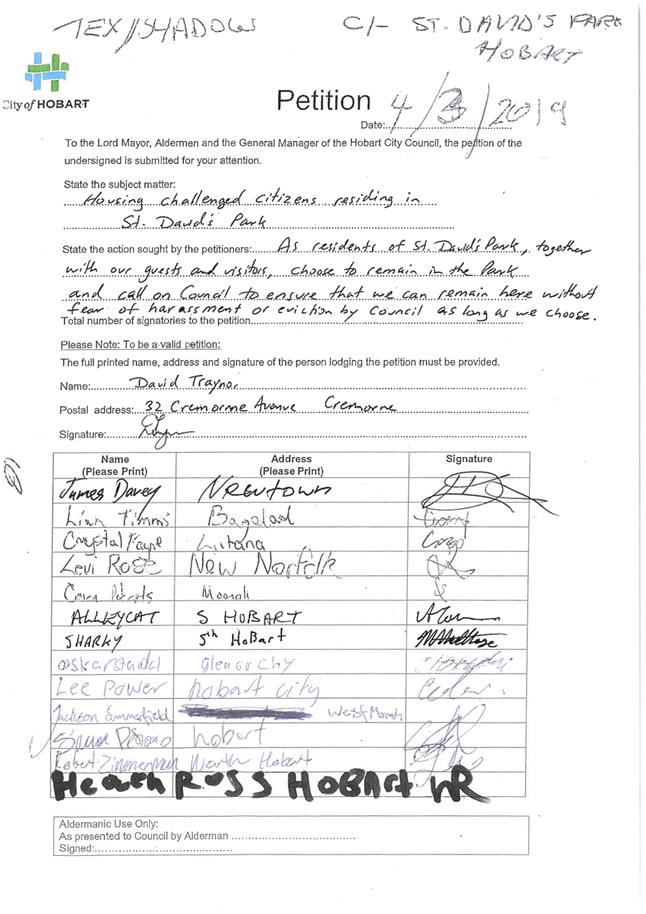 TEX//SHADOW C/- ST. DAVID'S PARK
HOBART
City of HOBART
Petition 4/3/2019
Date:
To the Lord Mayor, Aldermen and the General Manager of the Hobart City Council, the petition of the
undersigned is submitted for your attention.
State the subject matter:
Housing challenged citizens residing in
St. David's Park
State the action sought by the petitioners: As residents of St. David's Park, together
with our guests and visitors, choose to remain in the Park
and call on Council to ensure that we can remain here without
fear of harassment or eviction by Council as long as we choose.
Total number of signatories to the petition
Please Note: To be a valid petition:
The full printed name, address and signature of the person lodging the petition must be provided.
Name: David Traynor
Postal address: 32 Cremorne Avenue Cremorne
Signature:
Name Address Signature
(Please Print) (Please Print)
13
James Davey Newtown
Bagdad
Crystal Lutana
Levi Rose New Norfolk
Moonah
ALLEYCAT S HOBART
SHARKY Sth HoBart
Glenorchy
Lee Power hobart city
Jackson Summerfield West Moonah
hobart
Robert Zimmerman North Hobart
Heath ROSS HOBART HR
Aldermanic Use Only:
As presented to Council by Alderman
Signed: